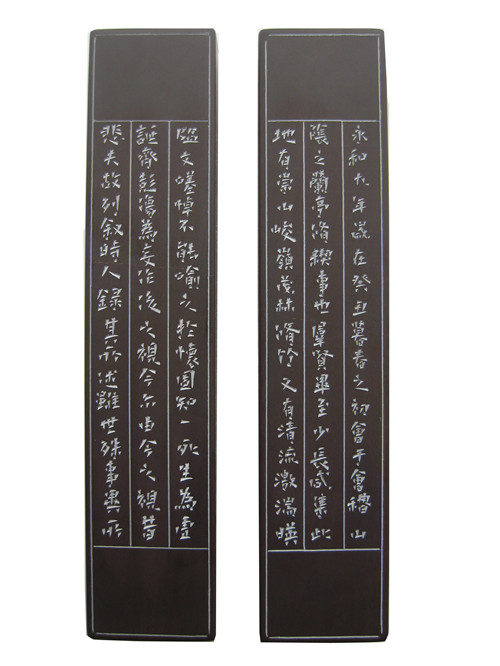 永和九年歲在癸丑暮春之初會于會稽山
陰之蘭亭脩禊事也羣賢畢至少長咸集此
地有崇山峻嶺茂林脩竹又有清流激湍暎
臨文嗟悼不能喻之於懷固知一死生為虛
誕齊彭殤為妄作後之視今亦由今之視昔
悲夫故列敘時人錄其所述雖世殊事異所